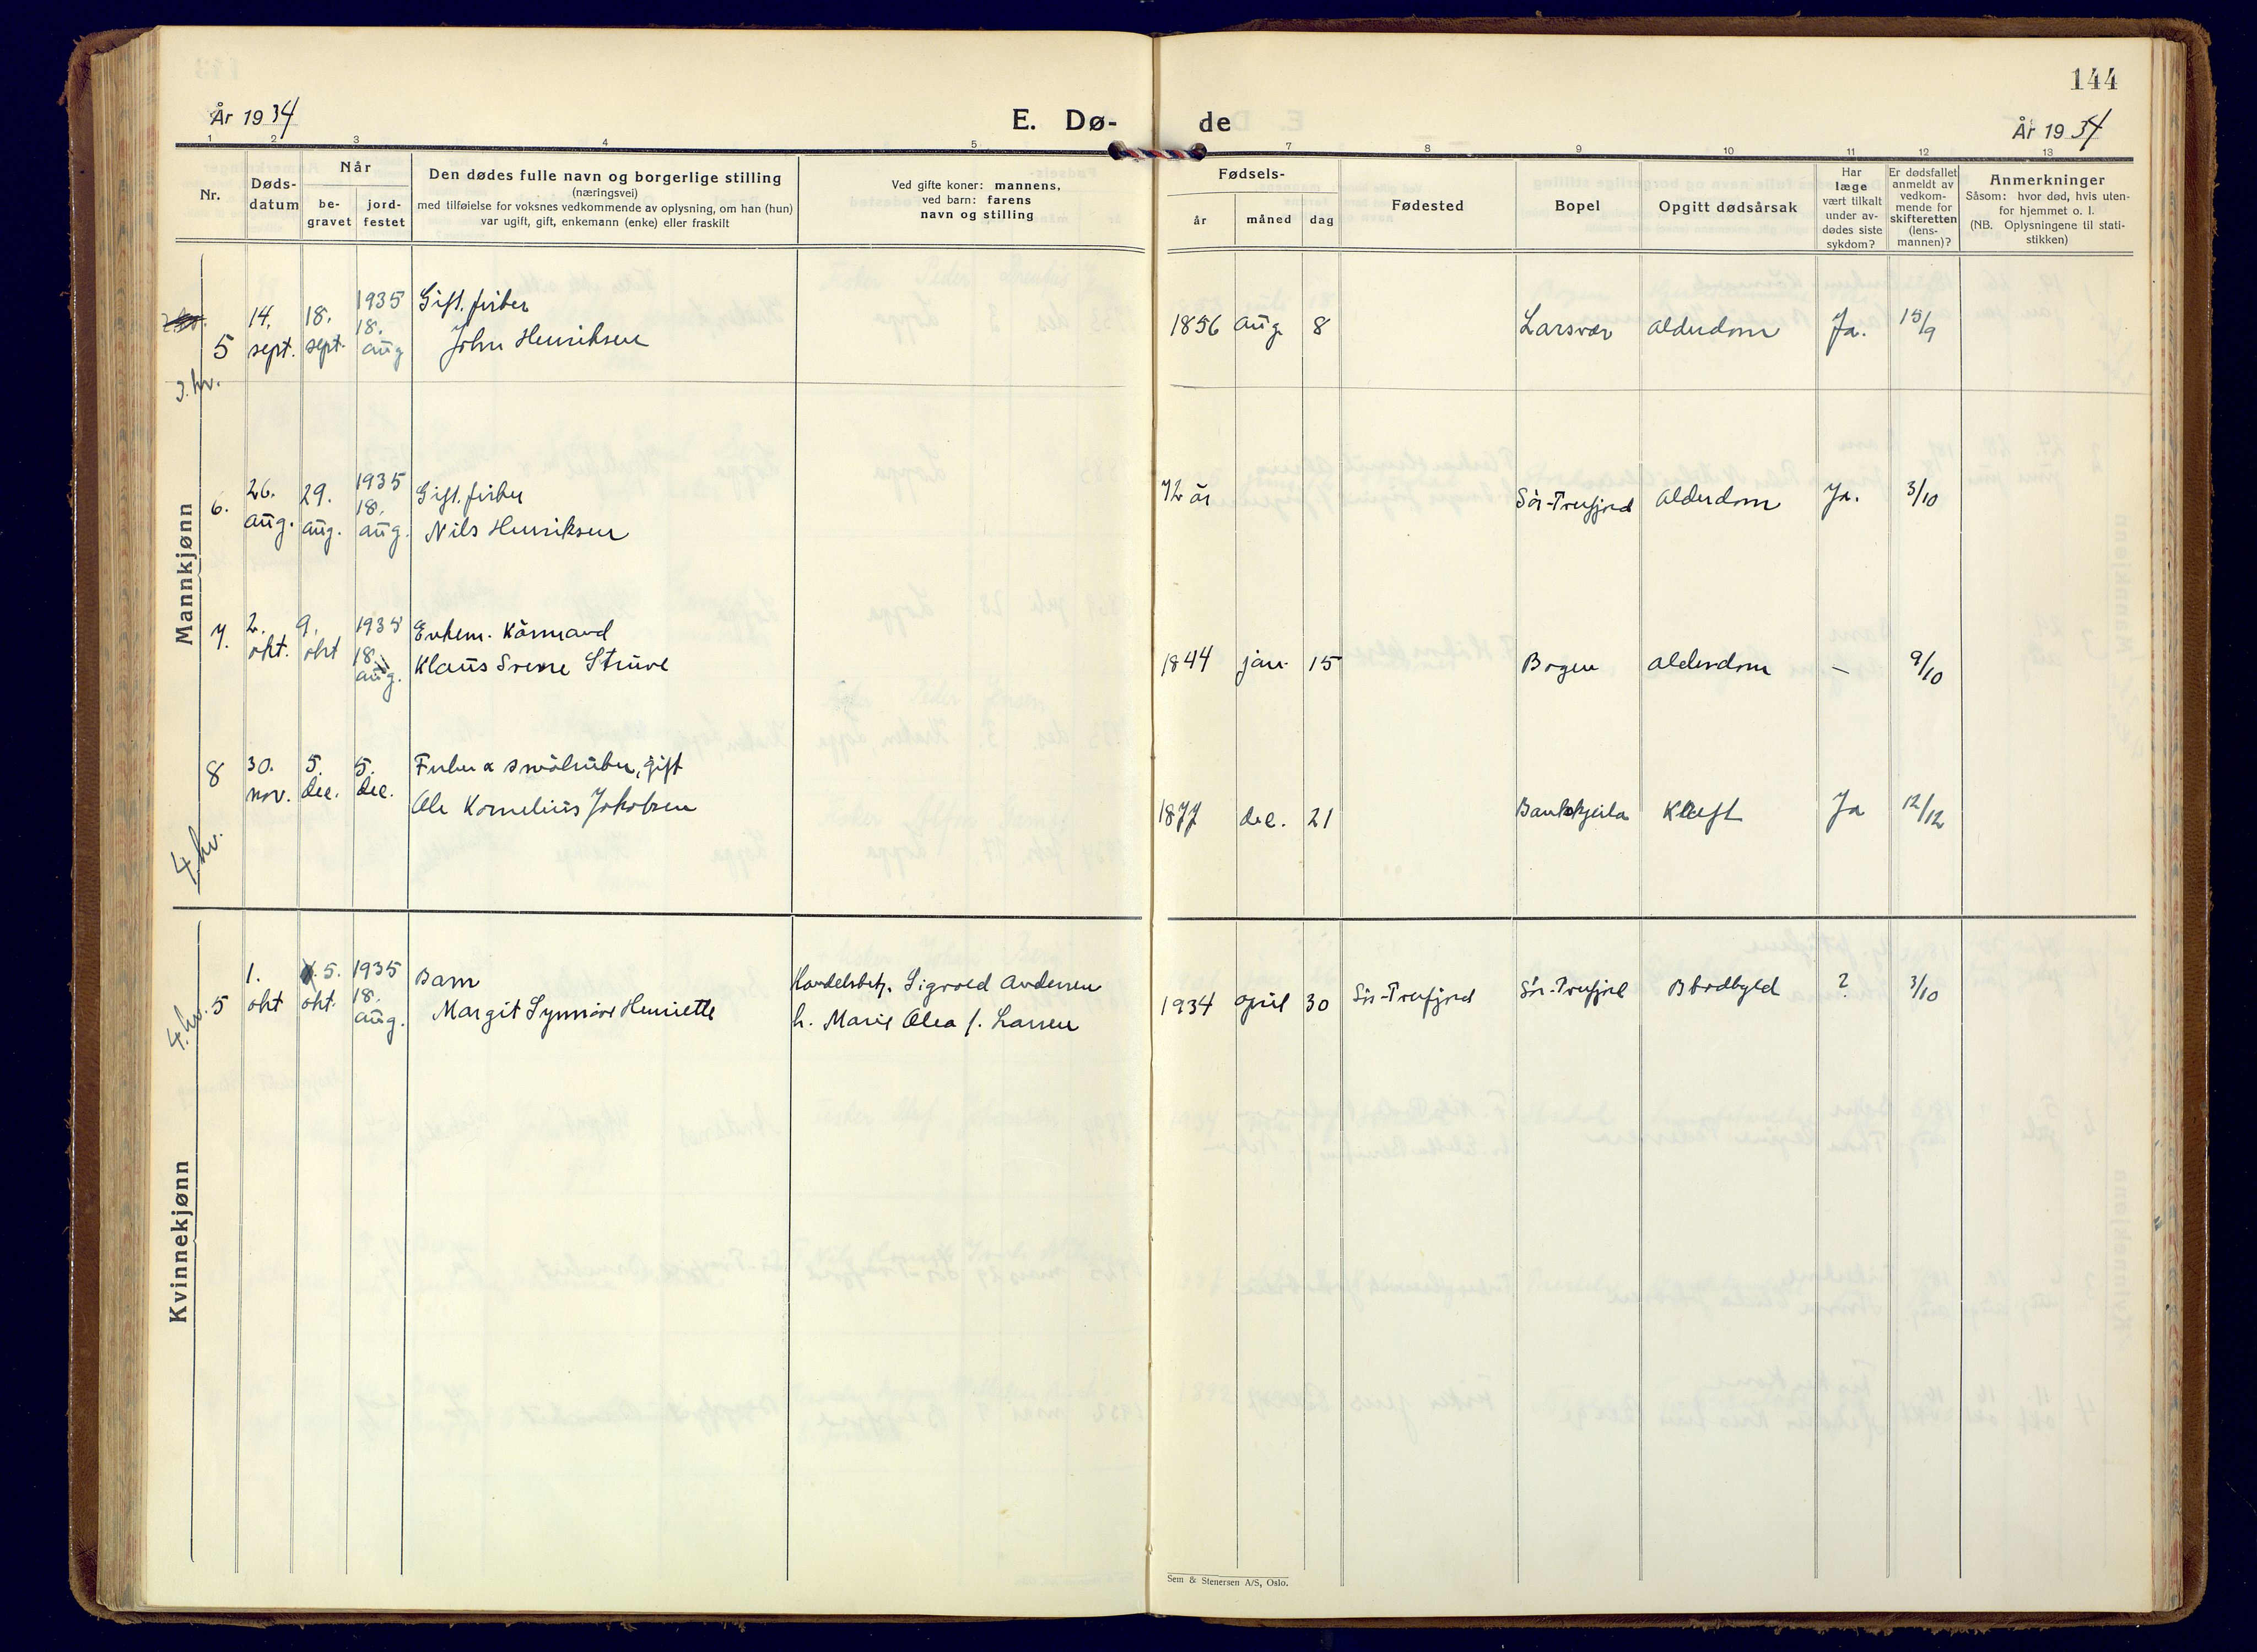 144
År 1934
E. Dø-
de
År 1934
1 2 3 4 5 7 8 9 10 11 12 13
Nr.
Døds-
datum
Når
be-
gravet
jord-
festet
Den dødes fulle navn og borgerlige stilling
(næringsvei)
med tilføielse for voksnes vedkommende av oplysning, om han (hun)
var ugift, gift, enkemann (enke) eller fraskilt
Ved gifte koner: mannens,
ved barn: farens
navn og stilling
Fødsels-
år
måned
dag
Fødested
Bopel
Opgitt dødsårsak
Har
læge
vært tilkalt
under av-
dødes siste
sykdom?
Er dødsfallet
anmeldt av
vedkom-
mende for
skifteretten
(lens-
mannen)?
Anmerkninger
Såsom: hvor død, hvis uten-
for hjemmet o. l.
(NB. Oplysningene til stati-
stikken)
Mannkjønn
5
14.
sept.
18.
sept.
1935
18.
aug
Gift. fisker
John Henriksen
1856 aug 8
Larsvær
alderdom
Ja.
15/9
3. kv.
6.
26.
aug.
29.
aug.
1935
18.
aug.
Gift. fisker
Nils Henriksen
72 år
Sør-Trefjord
alderdom
Ja.
3/10
7.
2.
okt.
9.
okt
1935
18.
aug.
Enkem. Kårmand
Klaus Svene Struve
1844 jan. 15
Bogen
alderdom
—
9/10
8
30.
nov.
5.
dec.
5.
dec.
Fisker & småbruker, gift
Ole Kornelius Jakobsen
1877 dec. 21
Kræft
Ja
12/12
4. kv.
Kvinnekjønn
4. kv.
5
1.
okt
5.
okt.
1935
18.
aug.
Barn
Margit Synnøve Henriette
Handelsbetj. Sigvald Andersen
h. Marie Olea f. Larsen
1934 april 30
Sør-Trefjord
Sør-Trefjord
?
3/10
Sem & Stenersen A/S, Oslo.